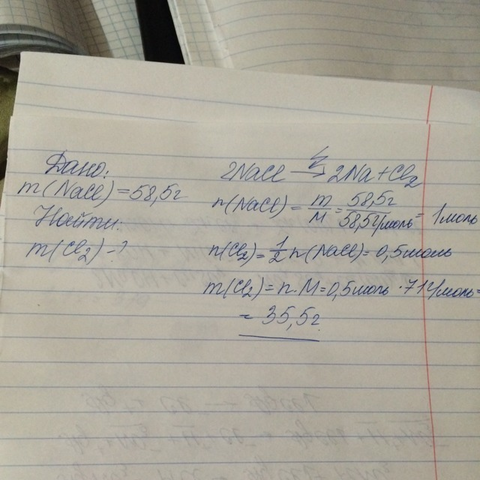 Дано:
m(NaCl)=58,5г
Найти:
m(Cl2)-?
2NaCl → 2Na+Cl2
n(NaCl) = m/M = 58,5г/58,5г/моль = 1моль
n(Cl2)=1/2 n(NaCl)=0,5моль
m(Cl2)=n·M=0,5моль·71г/моль=
= 35,5г